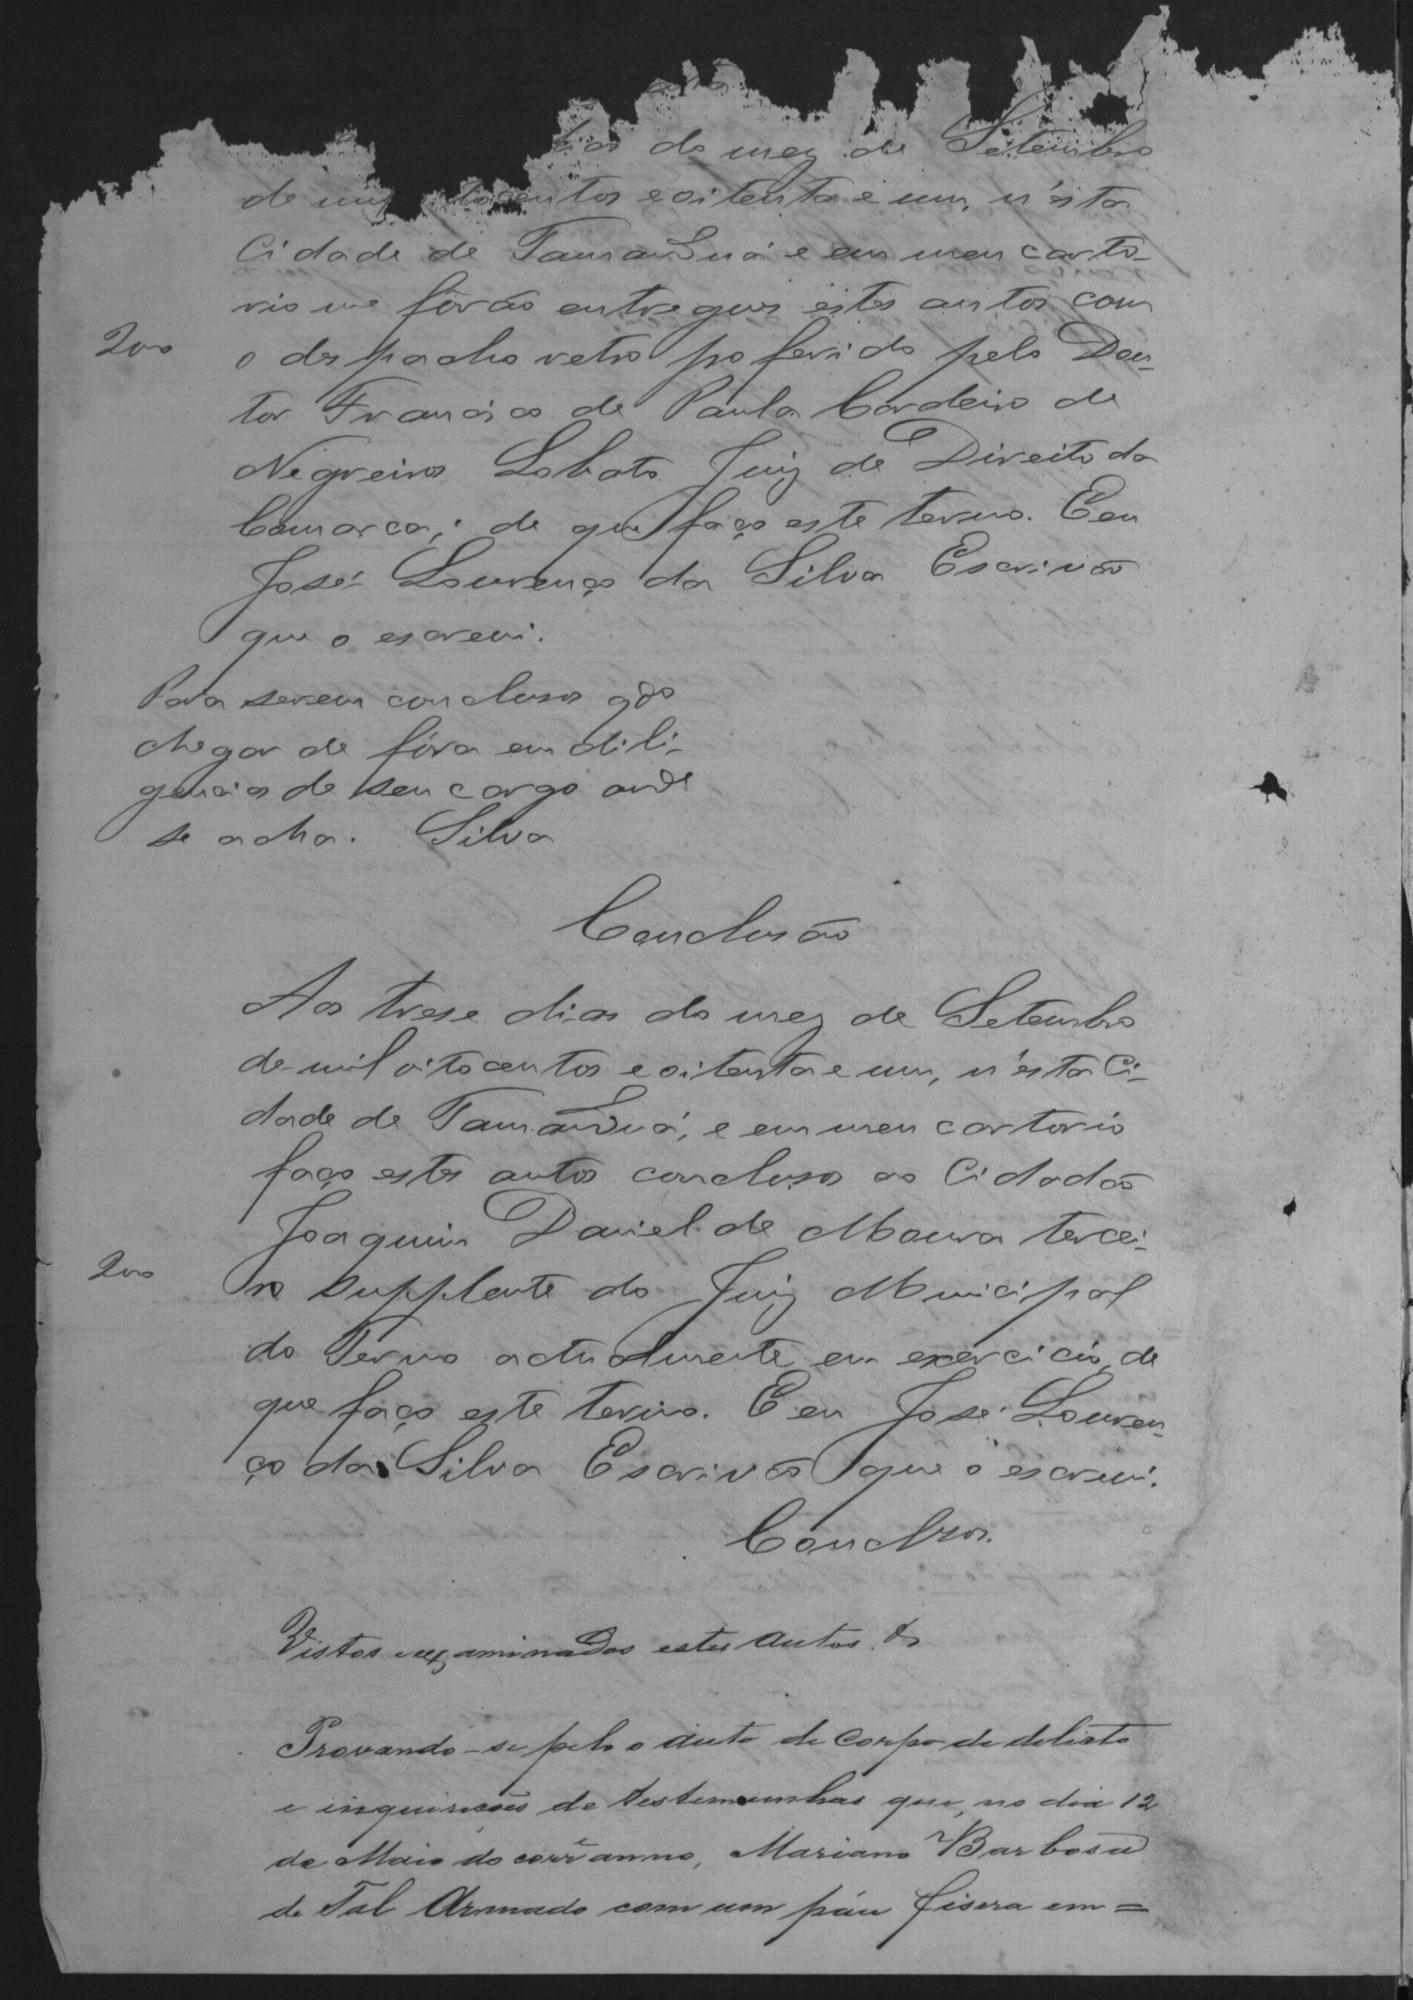 dias do mez de Setembro
de mil oitocentos e oitenta e um, n'esta
Cidade de Tamanduá e em meu carto-
rio me fôrão entregues estes autos com
200
o despacho retro poferido pelo Dou-
tor Francisco de Paula Cordeiro de
Negreiros Lobato Juiz de Direito da
Comarca; de que faço este termo. E eu
José Lourenço da Silva Escrivão
que o escrevi.
Para serem conclusos qdo
chegar de fóra em dili-
gencia de seu cargo onde
se acha. Silva
Conclusão
Aos trese dias do mez de Setembro
de mil oitocentos e oitenta e um, n'esta Ci-
dade de Tamanduá, e em meu cartorio
faço estes autos conclusos ao Cidadão
Joaquim Daniel de Moura tercei-
200
ro supplente do Juiz Municipal
do Termo actualmente em exercicio, de
que faço este termo. E eu José Louren-
ço da Silva Escrivão que o escrevi.
Conclsos.
Vistos e exgaminados estes autos &
Provando-se pelo o auto de corpo de delicto
e inquirições de testemunhas que, no dia 12
de Maio do corr.e anno, Mariano Barbosa
de Tal Armado com um páu fisera em=